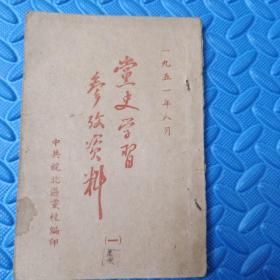 一九五一年八月
黨史学習
參攷资料
(一)
中共皖北區黨校編印